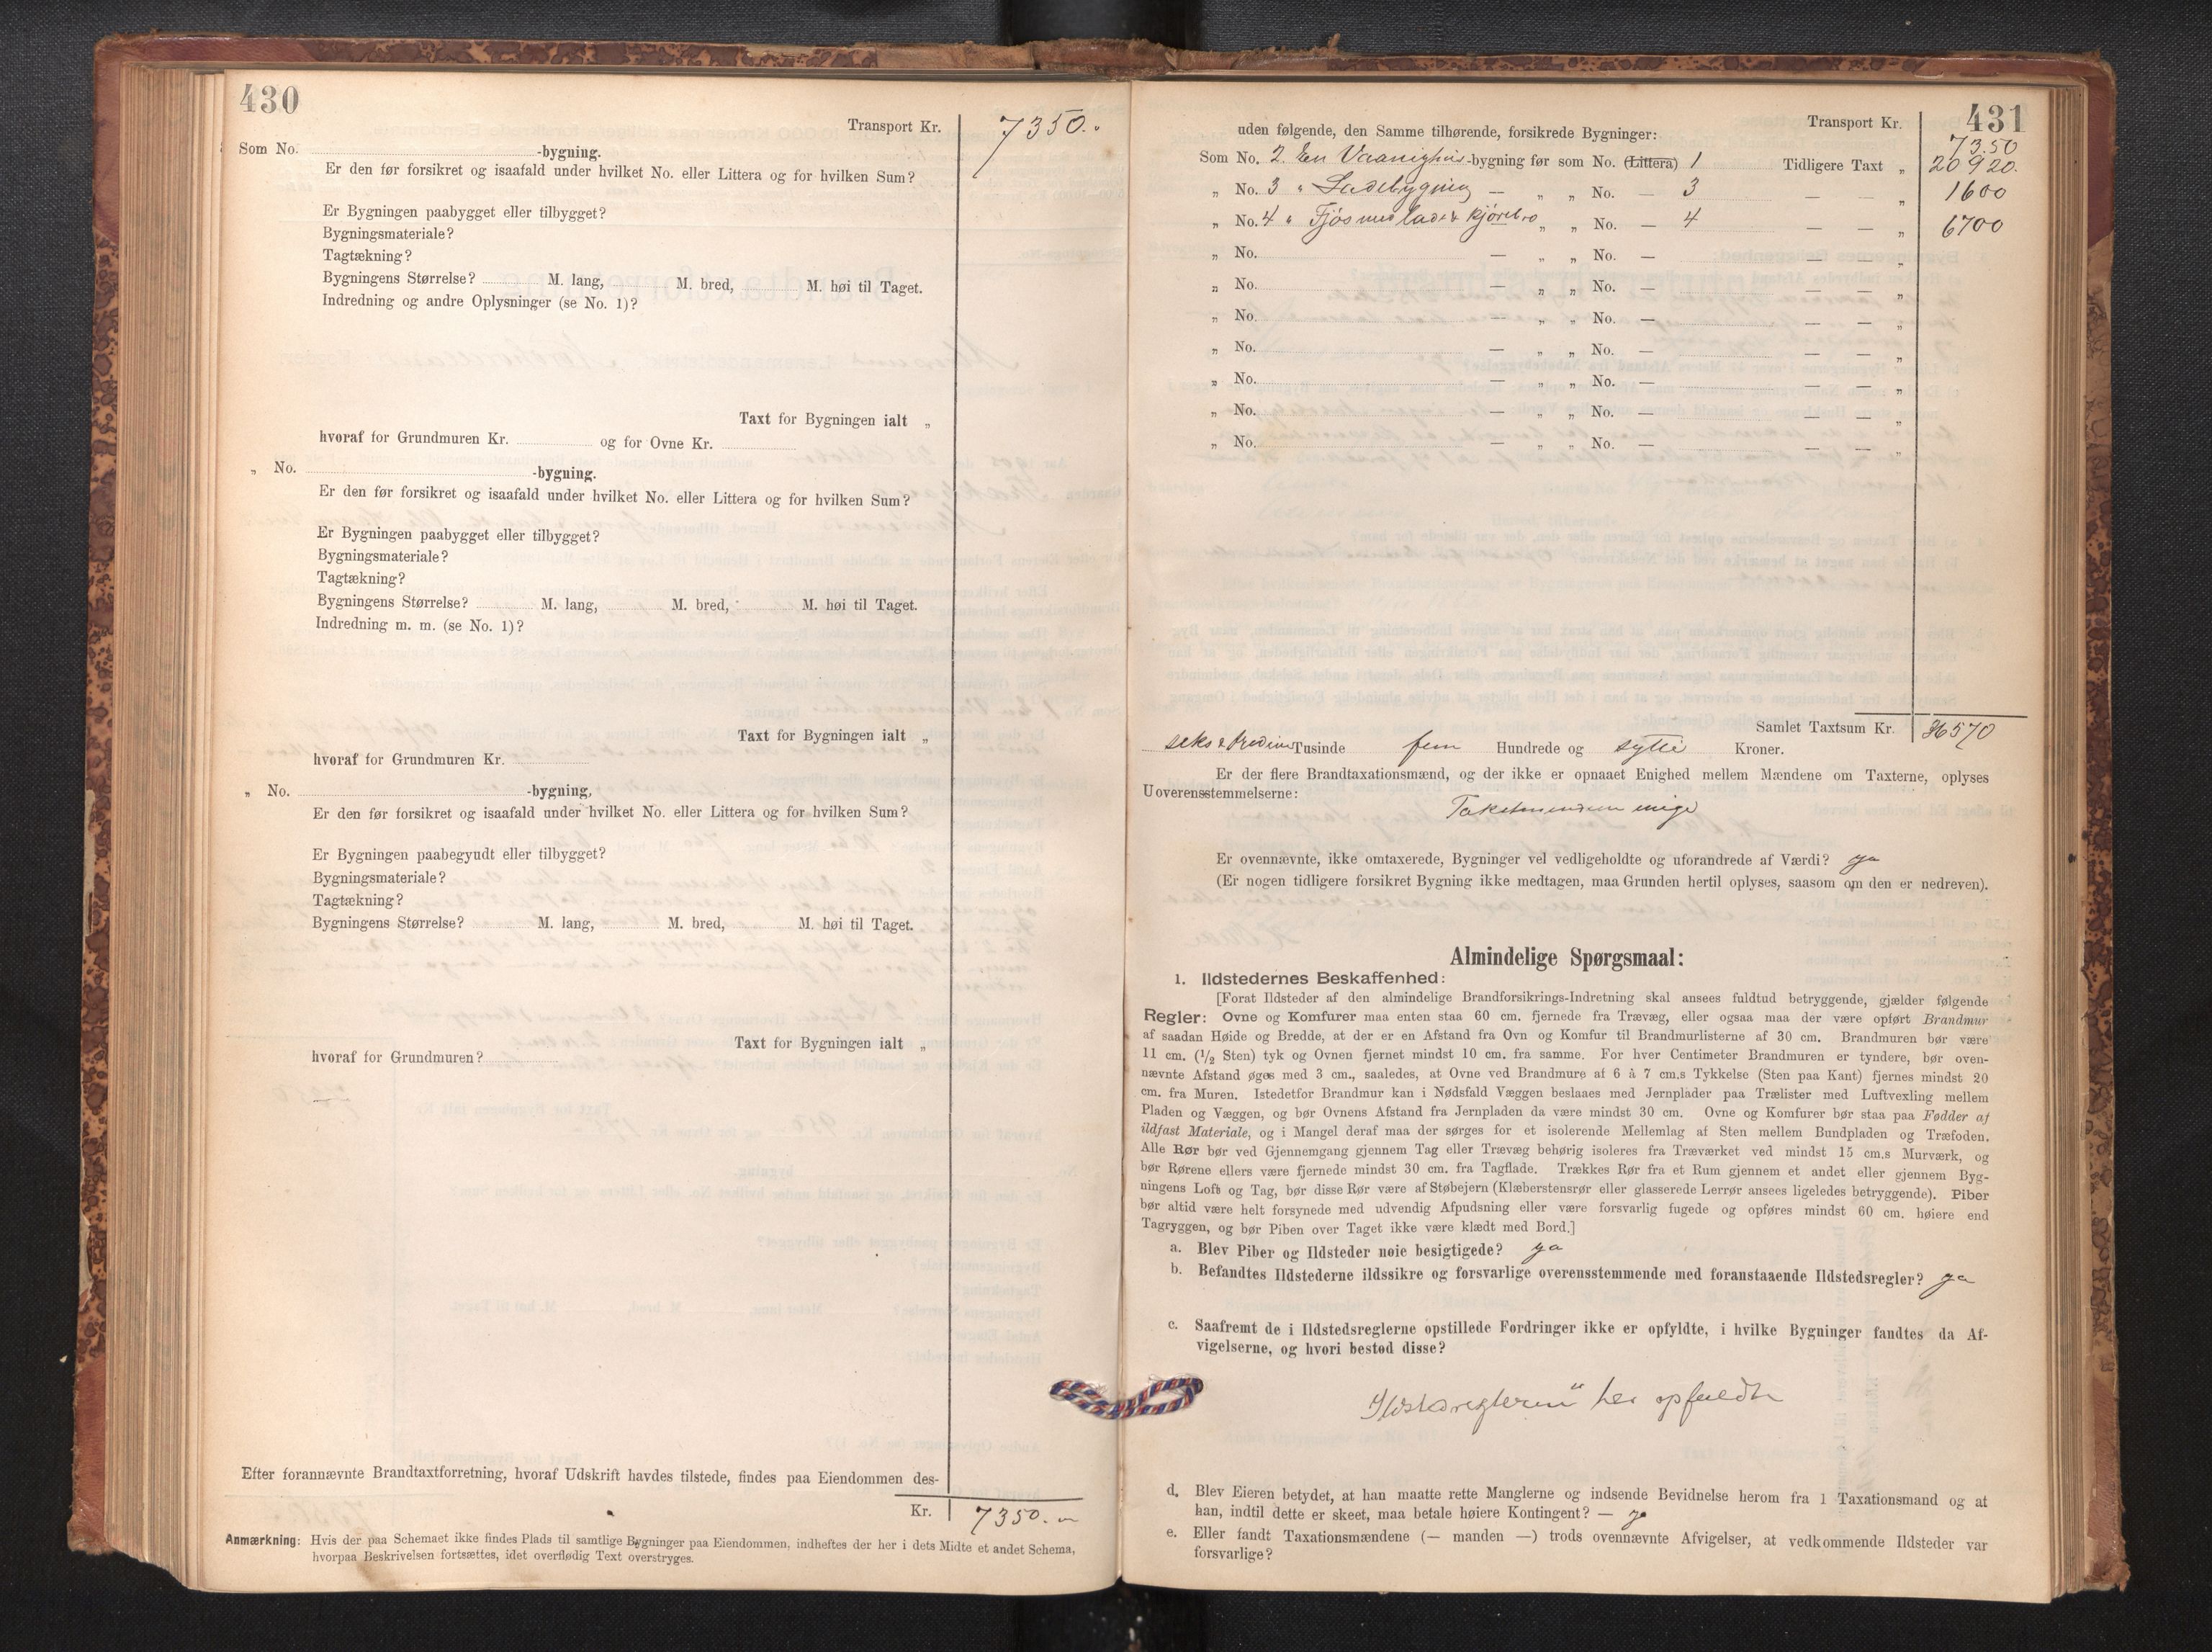 430
Transport Kr. 7350.
Som No. -bygning.
Er den før forsikret og isaafald under hvilket No. eller Littera og for hvilken Sum?
Er Bygningen paabygget eller tilbygget?
Bygningsmateriale?
Tagtækning?
Bygningens Størrelse? M. lang, M. bred, M. høi til Taget.
Indredning og andre Oplysninger (se No. 1)?
Taxt for Bygningen ialt „
hvoraf for Grundmuren Kr. og for Ovne Kr.
„ No. -bygning.
Er den før forsikret og isaafald under hvilket No. eller Littera og for hvilken Sum?
Er Bygningen paabygget eller tilbygget?
Bygningsmateriale?
Tagtækning?
Bygningens Størrelse? M. lang, M. bred, M. høi til Taget.
Indredning m. m. (se No. 1)?
Taxt for Bygningen ialt „
hvoraf for Grundmuren Kr.
„ No. -bygning,
Er den før forsikret og isaafald under hvilket No. eller Littera og for hvilken Sum?
Er Bygningen paabegyndt eller tilbygget?
Bygningsmateriale?
Tagtækning?
Bygningens Størrelse? M. lang, M. bred, M. høi til Taget.
Taxt for Bygningen ialt „
hvoraf for Grundmuren?
Efter forannævnte Brandtaxtforretning, hvoraf Udskrift havdes tilstede, findes paa Eiendommen des-
Kr. 7350.
Anmærkning: Hvis der paa Schemaet ikke findes Plads til samtlige Bygninger paa Eiendommen, indheftes der her i dets Midte et andet Schema,
hvorpaa Beskrivelsen fortsættes, idet overflødig Text overstryges.
431
Transport Kr. 7350
uden følgende, den Samme tilhørende, forsikrede Bygninger:
Som No. 2. En Vaanighus-bygning før som No. (Littera) 1 Tidligere Taxt „ 20920.
„ No. 3 „ Ladebygning — „ „ No. — 3 — — „ 1600
„ No. 4 „ Fjøs med lade & kjørebro „ „ No. — 4 — — „ 6700
„ No. — „ „ No. — — — „
„ No. — „ „ No. — — — „
„ No. — „ „ No. — — — „
„ No. — „ „ No. — — — „
„ No. — „ „ No. — — — „
„ No. — „ „ No. — — — „
„ No. — „ „ No. — — — „
Samlet Taxtsum Kr. 36570
seks & tredive Tusinde fem Hundrede og sytti Kroner.
Er der flere Brandtaxationsmænd, og der ikke er opnaaet Enighed mellem Mændene om Taxterne, oplyses
Uoverensstemmelserne:
Takstmændene enige
Er ovennævnte, ikke omtaxerede, Bygninger vel vedligeholdte og uforandrede af Værdi? ja
(Er nogen tidligere forsikret Bygning ikke medtagen, maa Grunden hertil oplyses, saasom om den er nedreven).
Almindelige Spørgsmaal:
1. Ildstedernes Beskaffenhed:
[Forat Ildsteder af den almindelige Brandforsikrings-Indretning skal ansees fuldtud betryggende, gjælder følgende
Regler: Ovne og Komfurer maa enten staa 60 cm. fjernede fra Trævæg, eller ogsaa maa der være opført Brandmur
af saadan Høide og Bredde, at der er en Afstand fra Ovn og Komfur til Brandmurlisterne af 30 cm. Brandmuren bør være
11 cm. (1/2 Sten) tyk og Ovnen fjernet mindst 10 cm. fra samme. For hver Centimeter Brandmuren er tyndere, bør oven-
nævnte Afstand øges med 3 cm., saaledes, at Ovne ved Brandmure af 6 à 7 cm.s Tykkelse (Sten paa Kant) fjernes mindst 20
cm. fra Muren. Istedetfor Brandmur kan i Nødsfald Væggen beslaaes med Jernplader paa Trælister med Luftvexling mellem
Pladen og Væggen, og bør Ovnens Afstand fra Jernpladen da være mindst 30 cm. Ovne og Komfurer bør staa paa Fødder af
ildfast Materiale, og i Mangel deraf maa der sørges for et isolerende Mellemlag af Sten mellem Bundpladen og Træfoden.
Alle Rør bør ved Gjennemgang gjennem Tag eller Trævæg behørig isoleres fra Træværket ved mindst 15 cm.s Murværk, og
bør Rørene ellers være fjernede mindst 30 cm. fra Tagflade. Trækkes Rør fra et Rum gjennem et andet eller gjennem Byg-
ningens Loft og Tag, bør disse Rør være af Støbejern (Klæberstensrør eller glasserede Lerrør ansees ligeledes betryggende). Piber
bør altid være helt forsynede med udvendig Afpudsning eller være forsvarlig fugede og opføres mindst 60 cm. høiere end
Tagryggen, og bør Piben over Taget ikke være klædt med Bord.]
a. Blev Piber og Ildsteder nøie besigtigede? ja
b. Befandtes Ildstederne ildssikre og forsvarlige overensstemmende med foranstaaende Ildstedsregler? ja
c. Saafremt de i Ildstedsreglerne opstillede Fordringer ikke er opfyldte, i hvilke Bygninger fandtes da Af-
vigelserne, og hvori bestod disse?
d. Blev Eieren betydet, at han maatte rette Manglerne og indsende Bevidnelse herom fra 1 Taxationsmand og at
han, indtil dette er skeet, maa betale høiere Kontingent? —
e. Eller fandt Taxationsmændene (— manden —) trods ovennævnte Afvigelser, at vedkommende Ildsteder var
forsvarlige?